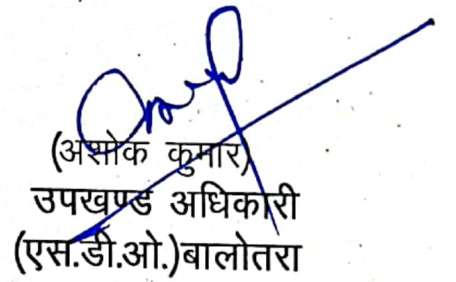 (अशोक कुमार)
उपखण्ड अधिकारी
(एस.डी.ओ.)बालोतरा